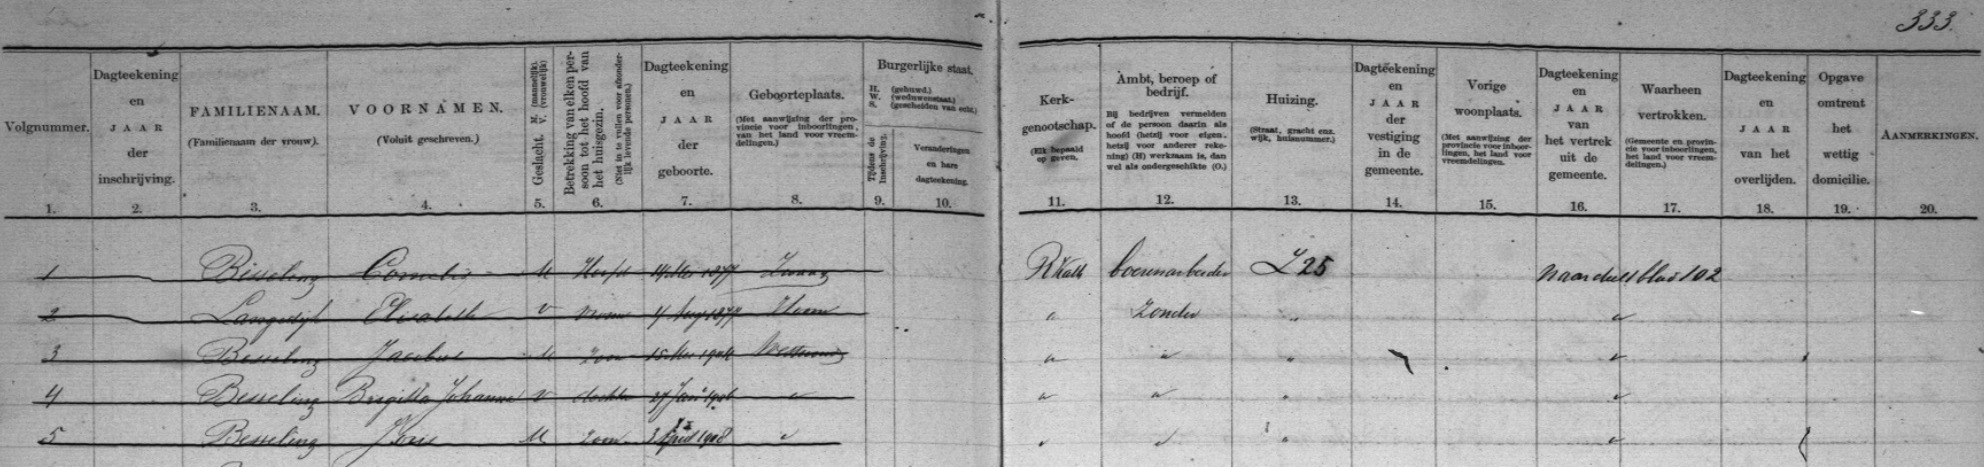 333.
Volgnummer.
1.
Dagteekening
en
JAAR
der
inschrijving.
2.
FAMILIENAAM.
(Familienaam der vrouw).
3.
VOORNAMEN.
(Voluit geschreven.)
4.
Geslacht. M. (mannelijk). V. (vrouwelijk)
5.
Betrekking van elken per-
soon tot het hoofd van
het huisgezin.
(Niet in te vullen voor afzonder-
lijk levende personen.)
6.
Dagteekening
en
JAAR
der
geboorte.
7.
Geboorteplaats.
(Met aanwijzing der pro-
vincie voor inboorlingen,
van het land voor vreem-
delingen.)
8.
Burgerlijke staat.
H. (gehuwd.)
W. (weduwenstaat.)
S. (gescheiden van echt.)
Tijdens de
Inschrijving.
9.
Veranderingen
en hare
dagteekening.
10.
Kerk-
genootschap.
(Elk bepaald
op geven.
11.
Ambt, beroep of
bedrijf.
Bij bedrijven vermelden
of de persoon daarin als
hoofd (hetzij voor eigen,
hetzij voor anderer reke-
ning) (H) werkzaam is, dan
wel als ondergeschikte (O.)
12.
Huizing.
(Straat, gracht enz.
wijk, huisnummer.)
13.
Dagteekening
en
JAAR
der
vestiging
in de
gemeente.
14.
Vorige
woonplaats.
(Met aanwijzing der
provincie voor inboor-
lingen, het land voor
vreemdelingen.
15.
Dagteekening
en
JAAR
van
het vertrek
uit de
gemeente.
16.
Waarheen
vertrokken.
(Gemeente en provin-
cie voor inboorlingen,
het land voor vreem-
delingen.)
17.
Dagteekening
en
JAAR
van het
overlijden.
18.
Opgave
omtrent
het
wettig
domicilie.
19.
AANMERKINGEN.
20.
1 Besseling Cornelis M Hoofd 1877 Zwaag R Kath boerenarbeider L 25 naar deel 1 blad 102
2 Langedijk Elisabeth V vrouw Hoorn " Zonder " "
3 Besseling Jacobus M zoon 1904 " " " "
4 Besseling Brigitta Johanna V dochter 27 1906 " " " " "
5 Besseling Joris M zoon April 1908 " " " " "